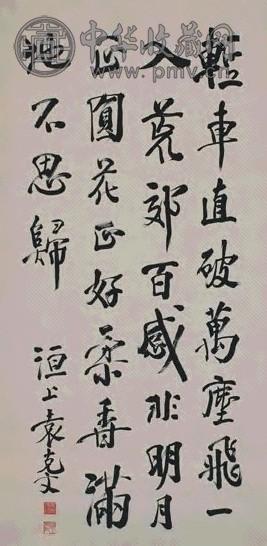 中华收藏网
www.pmv.cn
輕車直破萬塵飛一
入荒郊百感非明月
正圓花正好柔香滿
地不思歸
洹上袁克文